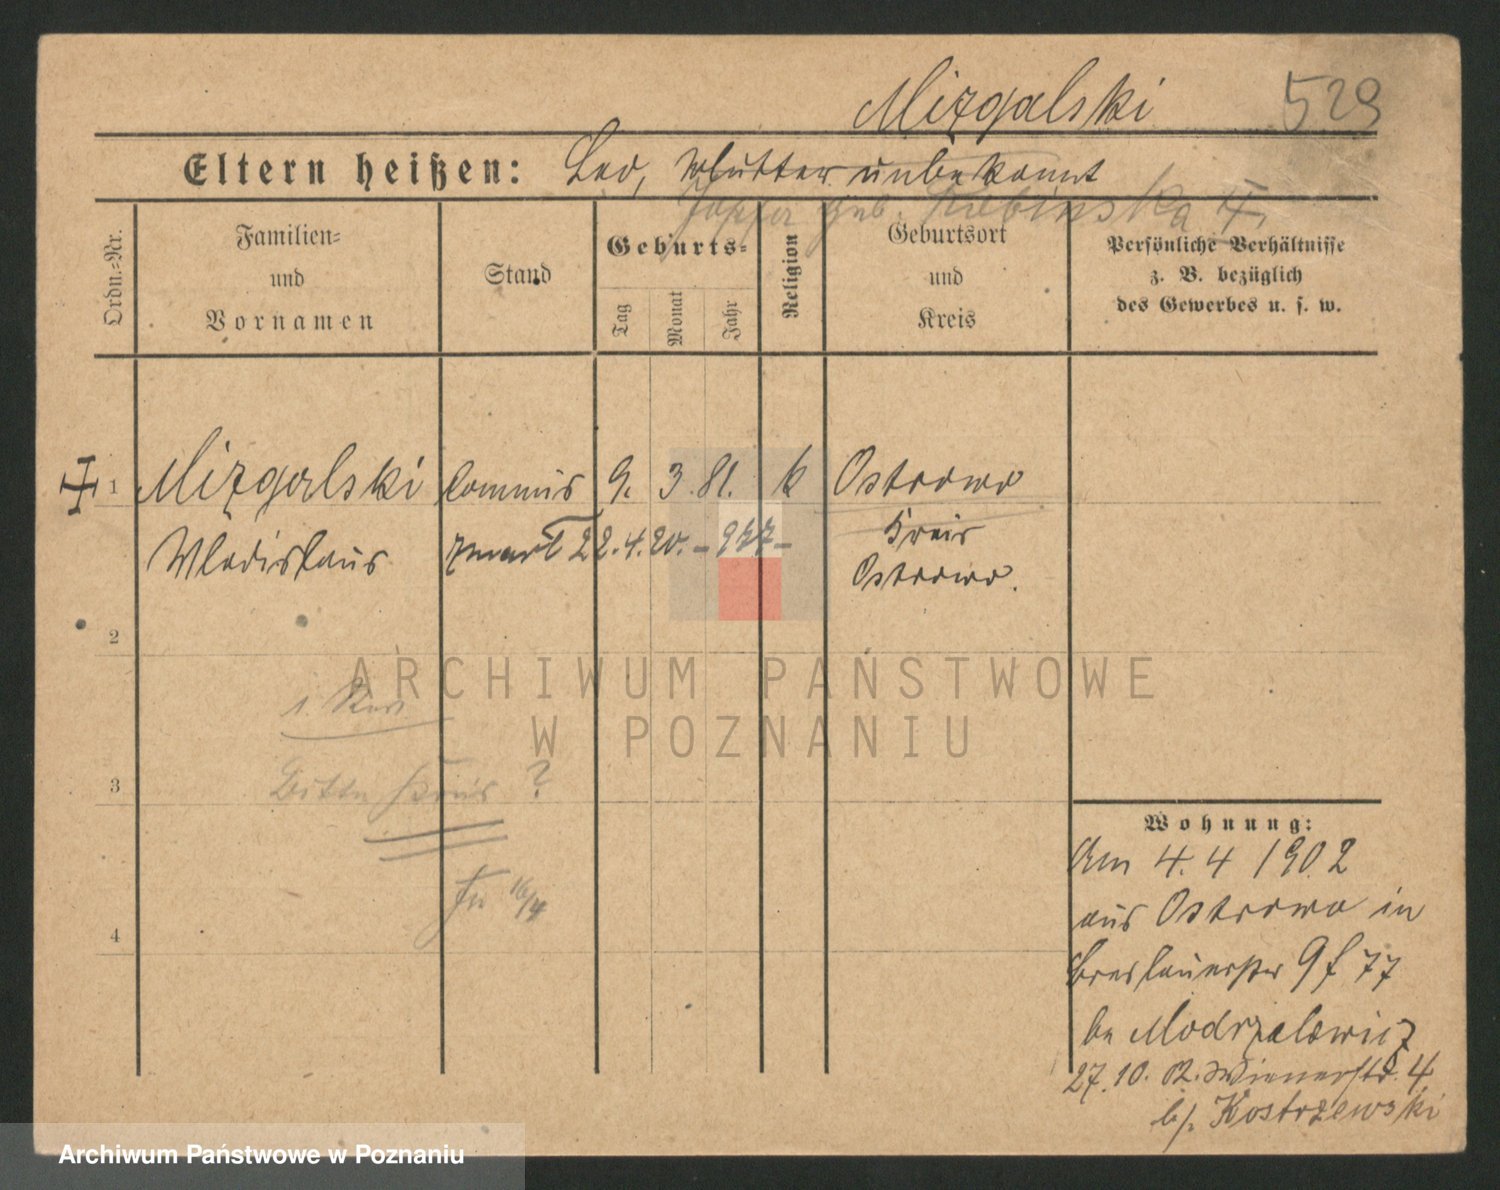 Mizgalski 529
Eltern heißen: Leo, Mutter unbekannt
geb. Rubinska
Ordn.=Nr.
Familien=
und
Vornamen
Stand
Geburts=
Tag
Monat
Jahr
Religion
Geburtsort
und
Kreis
Persönliche Verhältnisse
z. B. bezüglich
des Gewerbes u. s. w.
1 Mizgalski Commis 9. 3. 81. k Ostrowo
Wladislaus 22. 4. 20. Kreis
Ostrowo.
2
ARCHIWUM PAŃSTWOWE
W POZNANIU
3
Bitte ?
16/4
4
Wohnung:
Am 4. 4 1902
aus Ostrowo in
Breslauerstr 9 77
be Modrzalewicz
27. 10. 02. Wienerstr. 4
b/. Kostrzewski
Archiwum Państwowe w Poznaniu